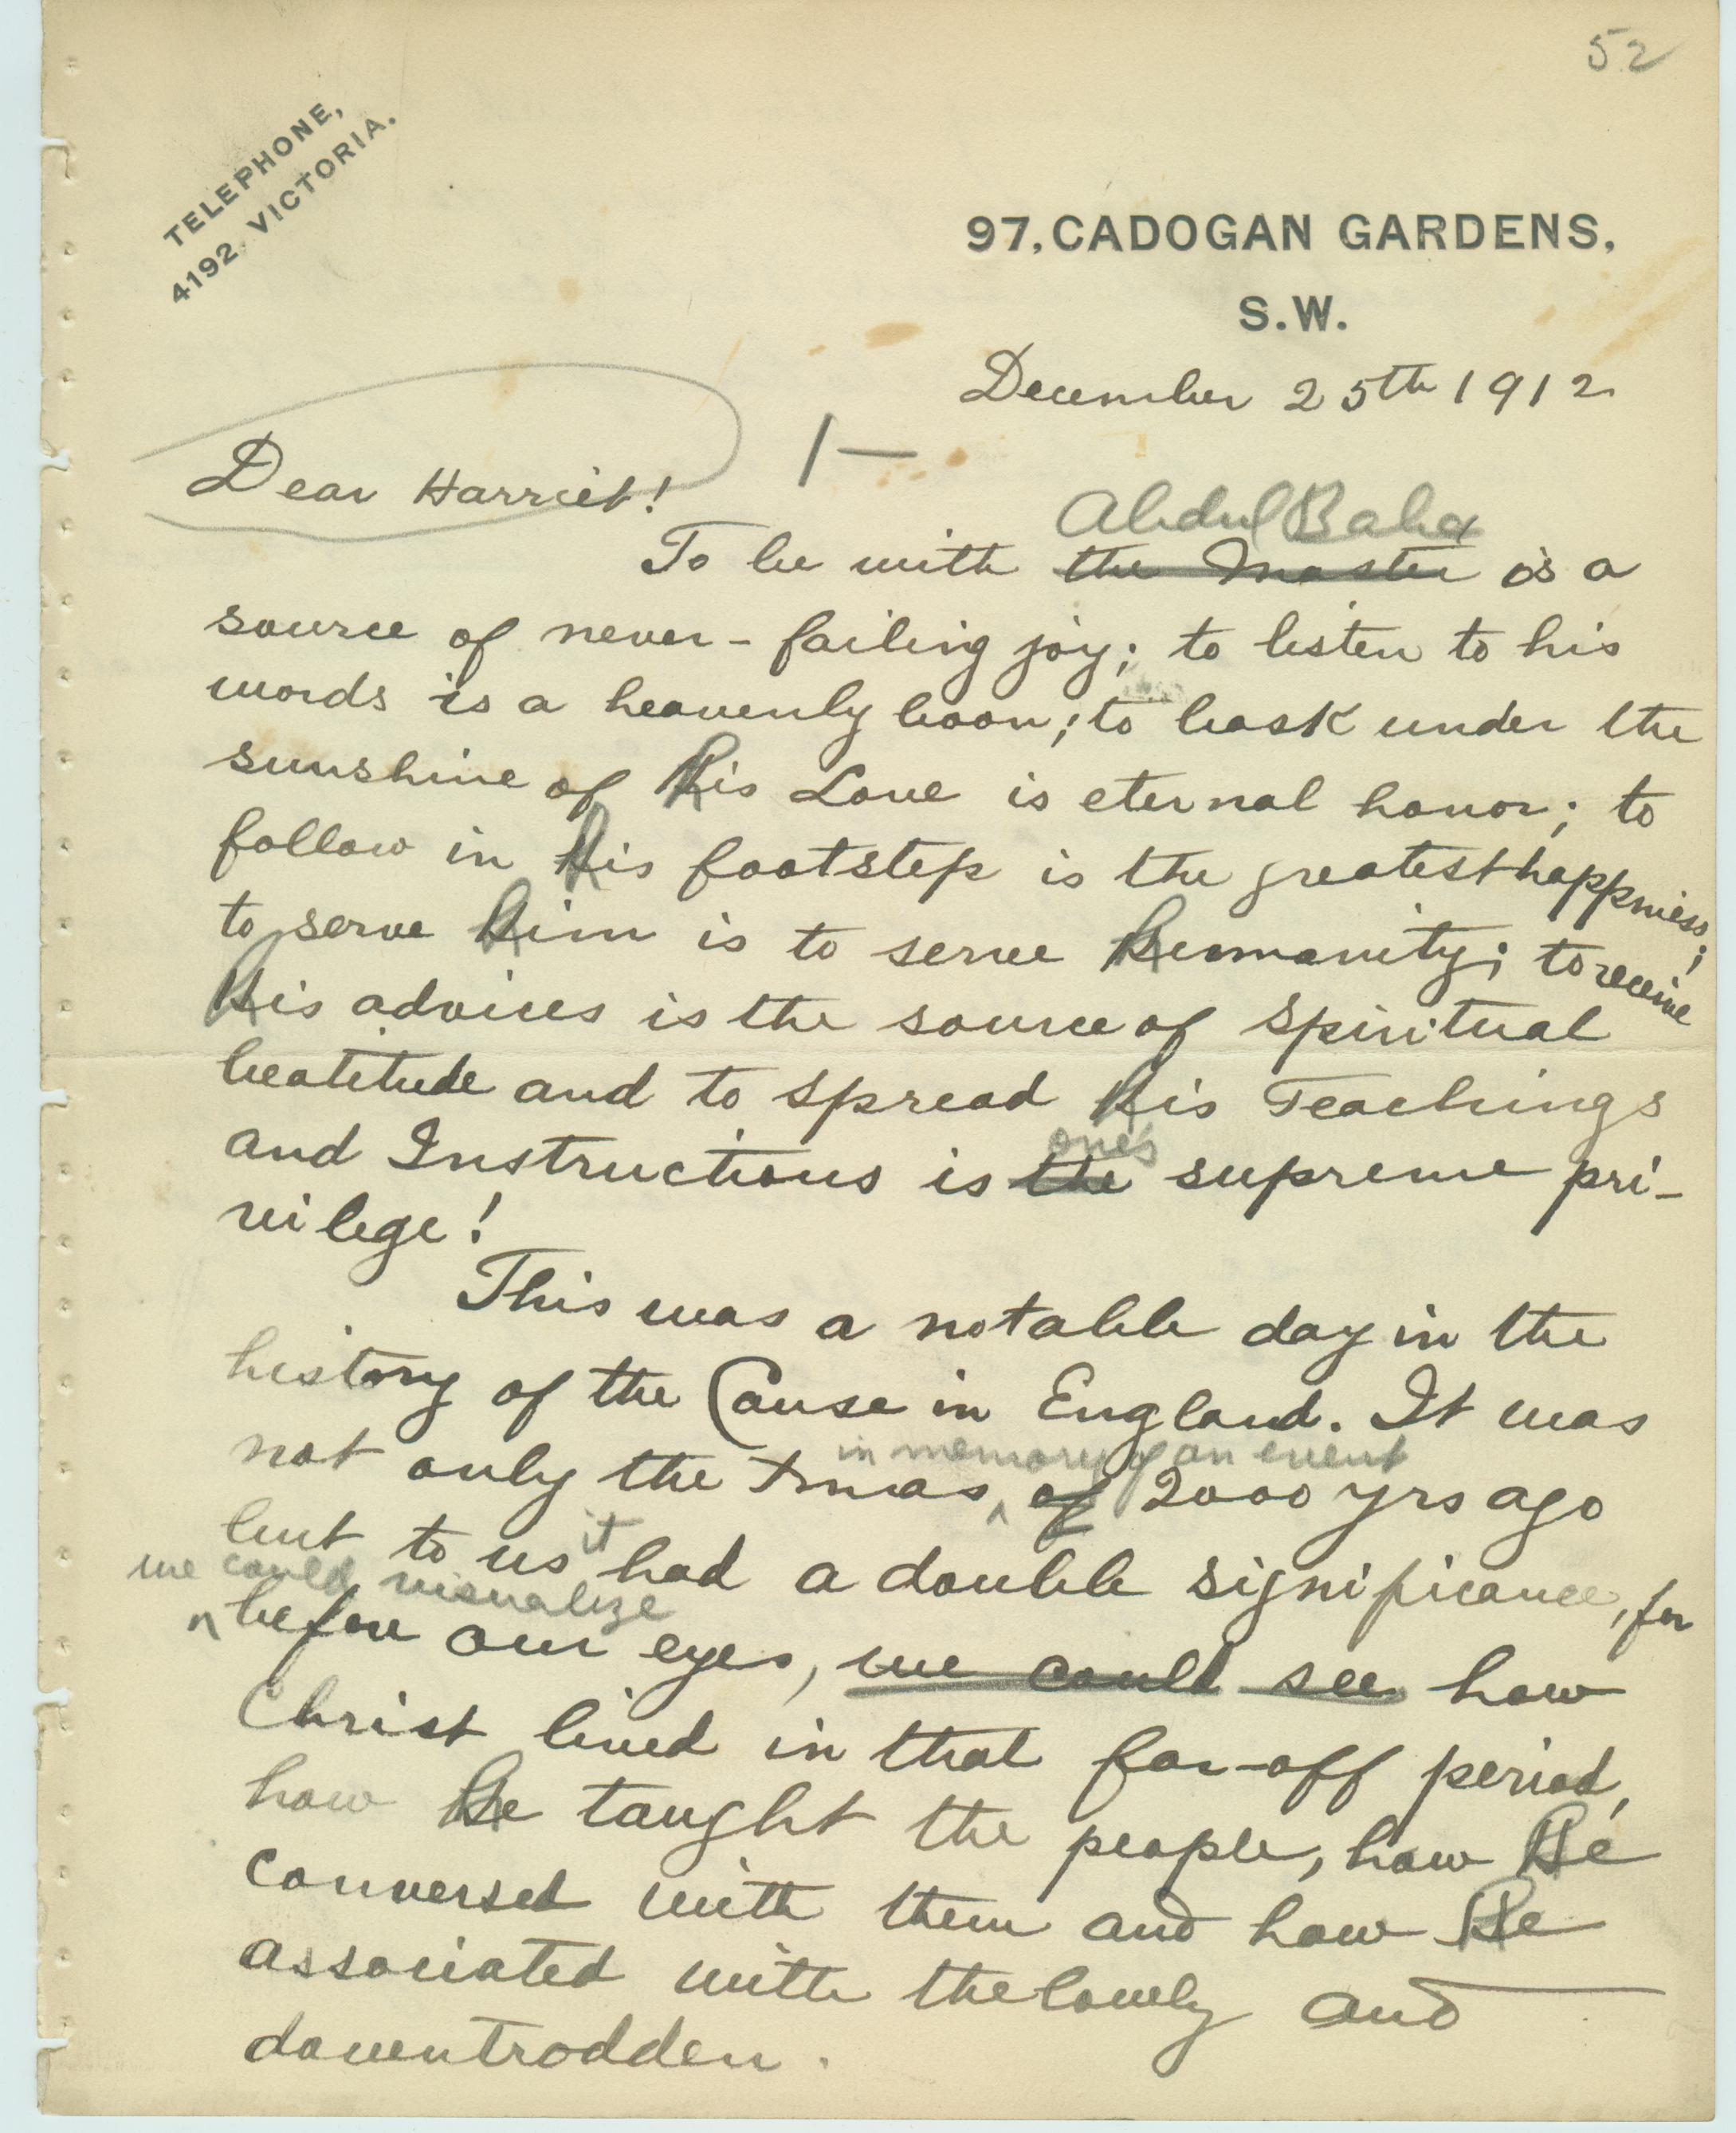 52
TELEPHONE,
4192. VICTORIA.
97, CADOGAN GARDENS,
S.W.
December 25th 1912
1—
Dear Harriet!
Abdul Baha
To be with the Master is a
source of never-failing joy; to listen to his
words is a heavenly boon; to bask under the
sunshine of His Love is eternal honor; to
follow in His footstep is the greatest happiness;
to serve Him is to serve Humanity; to receive
His advices is the source of spiritual
beatitude and to spread His Teachings
one's
and Instructions is the supreme pri-
vilege!
This was a notable day in the
history of the Cause in England. It was
in memory of an event
not only the Xmas of 2000 yrs ago
it
but to us had a double significance, for
we could visualize
before our eyes, we could see how
Christ lived in that far-off period,
how He taught the people, how He
conversed with them and how He
associated with the lowly and
downtrodden.